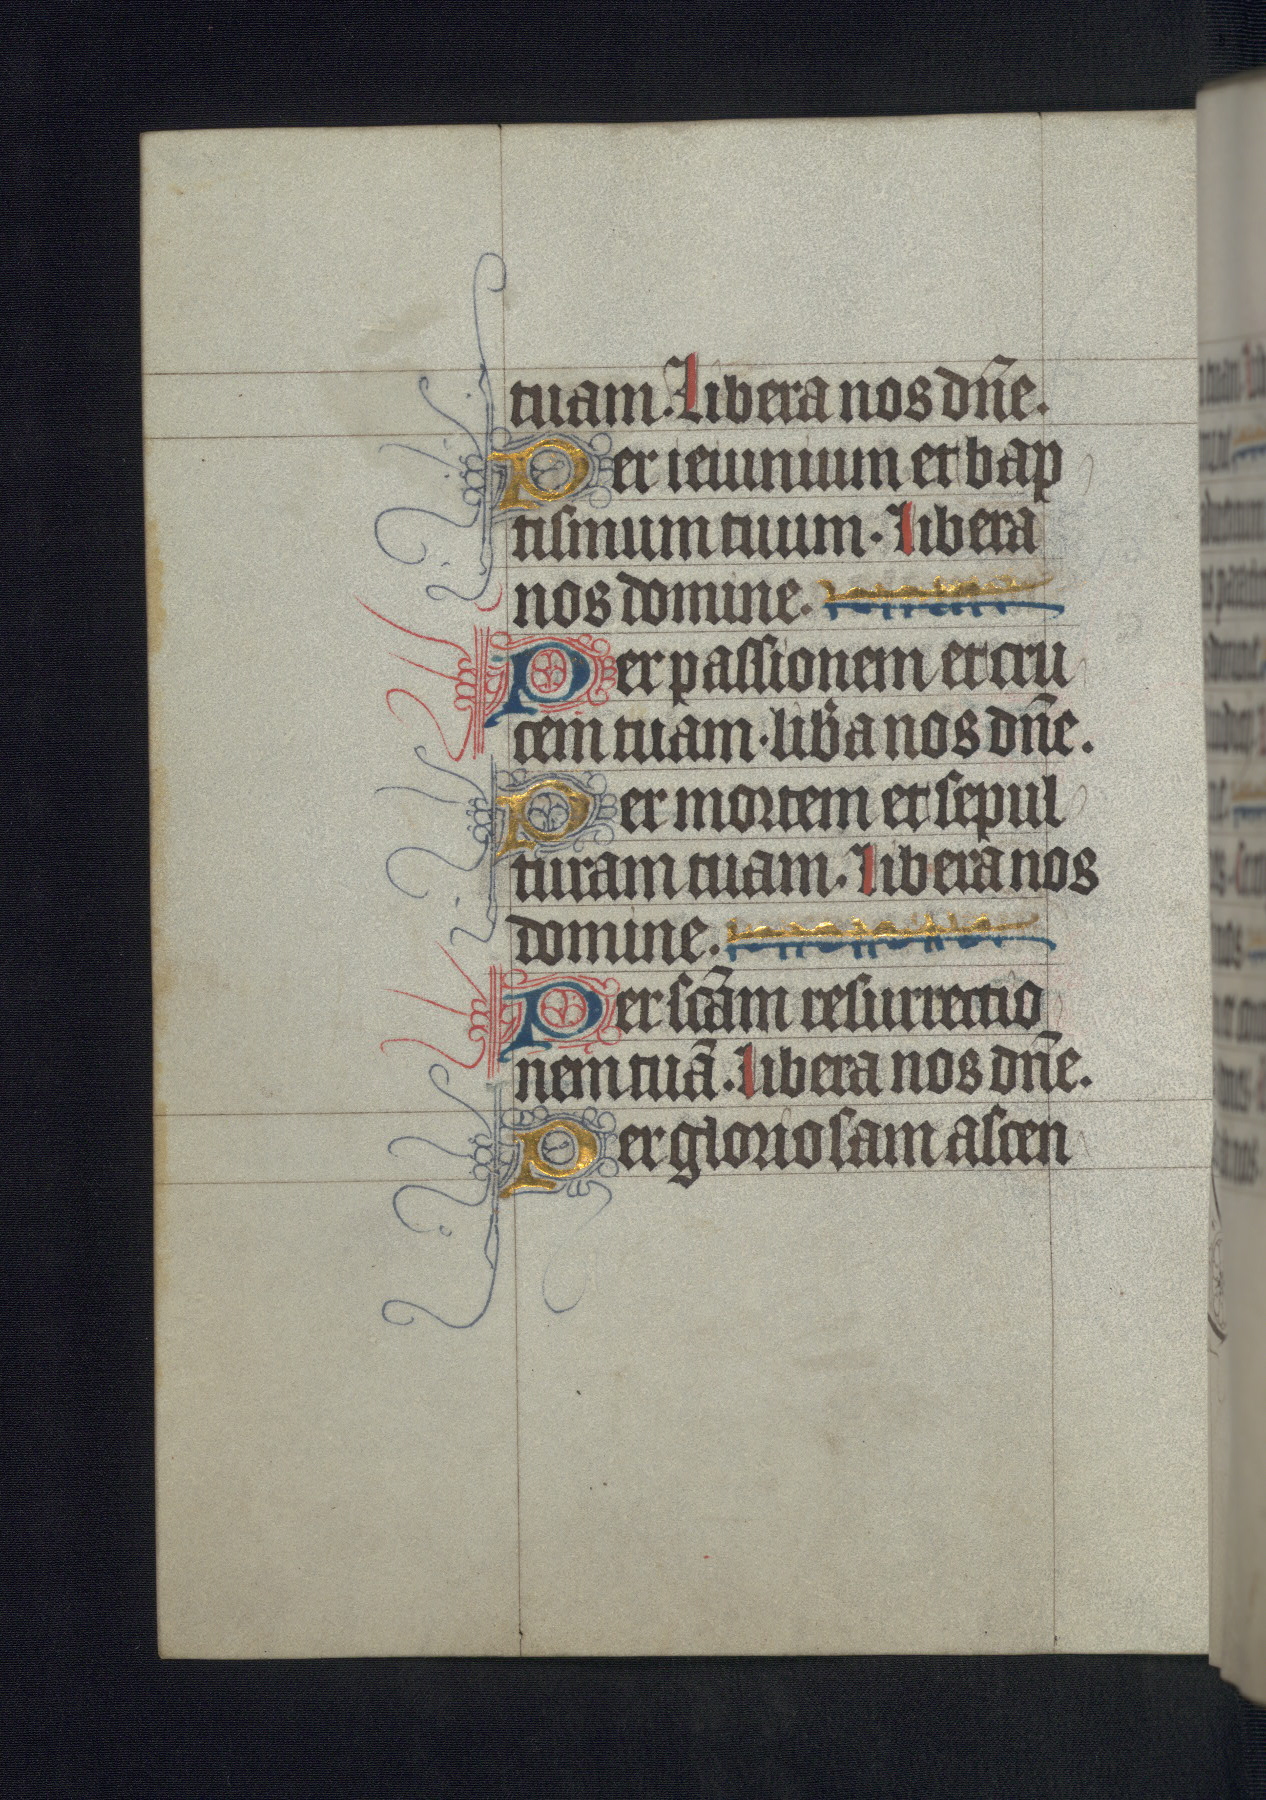 tuam. Libera nos dn̄e.
Per ieiunium et bap
tismum tuum. Libera
nos domine.
Per passionem et cru
cem tuam. lib̄a nos dn̄e.
Per mortem et sepul
turam tuam. Libera nos
domine.
Per sc̄am resurrectio
nem tuā. Libera nos dn̄e.
Per gloriosam ascen